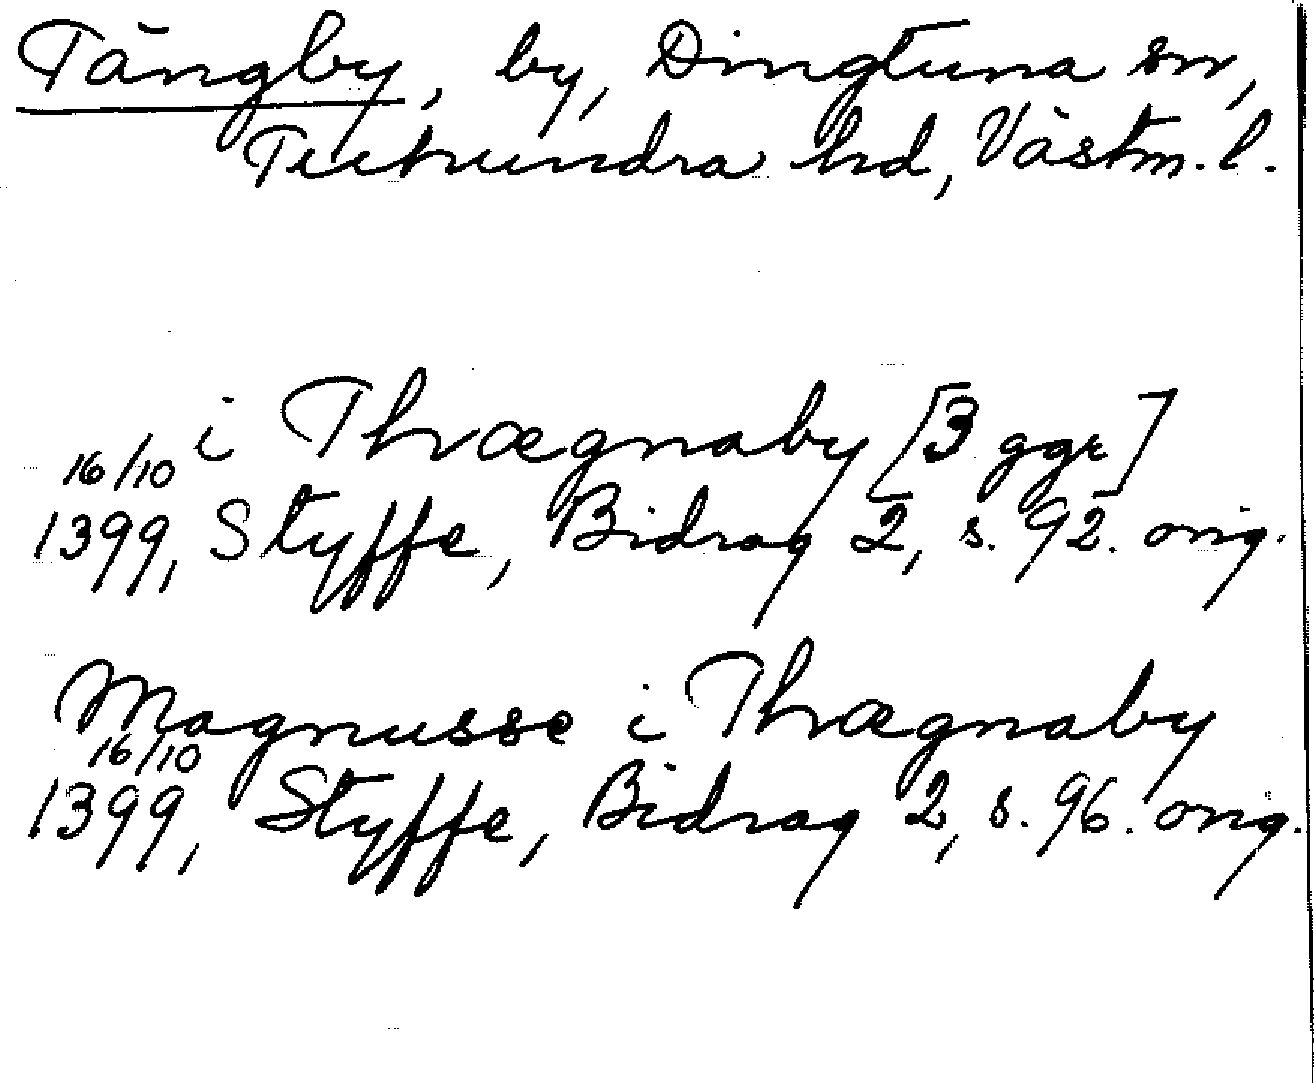 Tängby, by, Dingtuna sn,
Tuhundra hd, Västm. l.
i Thrægnaby [3 ggr]
16/10
1399, Styffe, Bidrag 2, s. 92. orig.
Magnusse i Thrægnaby
16/10
1399, Styffe, Bidrag 2, s. 96. orig.